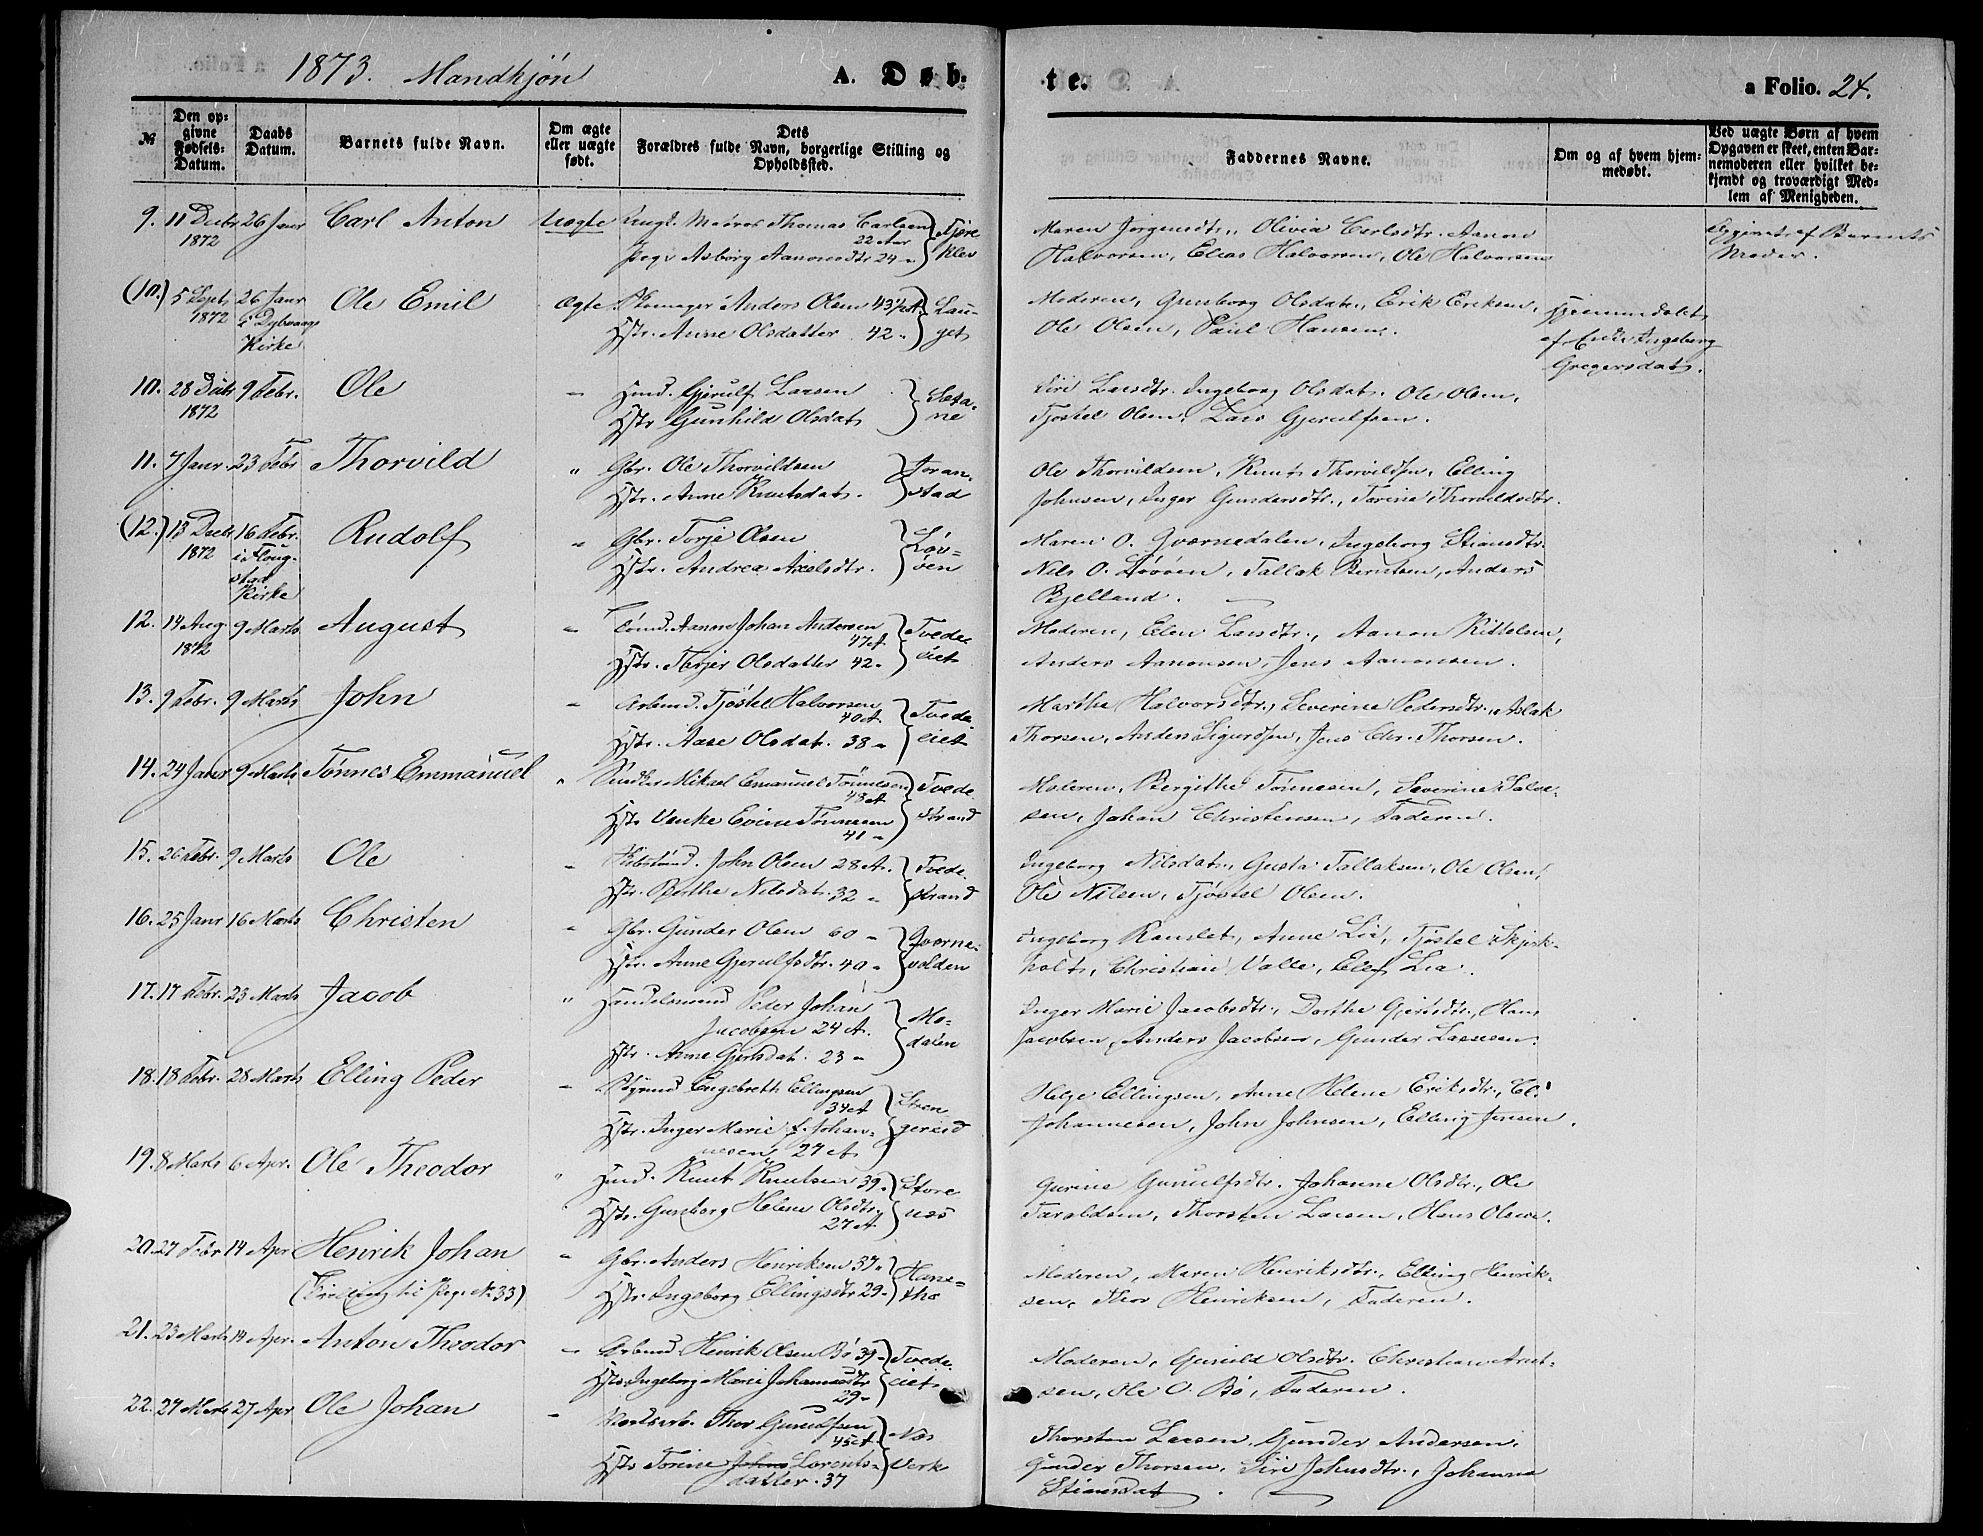 1873. Mandkjøn A. Døb-
te. a Folio. 24.
№ Den op-givne Fødsels-Datum. Daabs Datum. Barnets fulde Navn. Om ægte eller uægte født. Dets Forældres fulde Navn, borgerlige Stilling og Opholdssted. Faddernes Navne. Om og af hvem hjem-medøbt. Ved uægte Børn af hvem Opgaven er skeet, enten Bar-nemoderen eller hvilket be-kjendt og troværdigt Med-lem af Menigheden.
9. 11 Decbr 26 Janr Carl Anton Uægte Ungk. Matros Thomas Carlsen
1872 22 Aar
Pige Asborg Aanonsdtr 24 „
Maren Jørgensdtr., Olivia Carlsdtr. Aanon
Halvorsen, Elias Halvorsen, Ole Halvorsen
af Barnets
Moder.
(10.) 5 Sept. 26 Janr Ole Emil Ægte Skomager Anders Olsen 43½ A. Lau-
1872 i Dybvaags Hstr. Anne Olsdatter 42 „ get
Kirke
Moderen, Gunborg Olsdatr., Erik Eriksen,
Ole Olsen, Paul Hansen.
Hjemmedøbt
af Enke Ingeborg
Gregersdatr.
10. 28 Decbr 9 Febr. Ole „ Hmd. Gjerulf Larsen Seta-
1872 Hstr Gunhild Olsdatr ne
Siri Larsdtr. Ingeborg Olsdatr. Ole Olsen,
Tjøstel Olsen, Lars Gjerulfsen.
11. 7 Janr. 23 Febr Thorvild „ Gbr. Ole Thorvildsen Goran-
Hstr. Anne Knutsdatr. stad
Ole Thorvildsen, Knut Thorvildsen, Elling
Johnsen, Inger Gundersdtr., Torine Thorvildsdtr.
(12.) 13 Decbr 16 Febr. Rudolf „ Gbr. Torje Olsen Løv-
1872 i Floug- Hstr. Andrea Axelsdtr. øen
stad
Kirke
Maren O. Qværnedalen, Ingeborg Stiansdtr.
Nils O. Løvøen, Tallak Berntsen, Anders
Bjelland.
12. 14 Aug. 9 Marts August „ Tømd. Aanon Johan Andersen Tvede-
1872 47 A
Hstr. Terjer Olsdatter 42 „ eiet
Moderen, Elen Larsdtr., Aanon Kittelsen,
Anders Aanonsen, Jens Aanonsen.
13. 9 Febr. 9 Marts John „ Arbmd. Tjøstel Halvorsen Tvede-
40 A.
Hstr. Aase Olsdat. 38 „ eiet
Martha Halvorsdtr., Severine Pedersdtr., Aslak
Thorsen, Anders Sigurdsen, Jens Chr. Thorsen.
14. 24 Janr 9 Marts Tønnes Emmanuel „ Mikael Emanuel Tønnesen Tvede-
48 A
Hstr Venke Evine Tønnesen strand
41 „
Moderen, Bergithe Tønnesen, Severine Salve-
sen, Johan Christensen, Faderen.
15. 26 Febr. 9 Marts Ole „ John Olsen 28 A. Tvede-
Hstr. Berthe Nilsdat. 32 „ strand
Ingeborg Nilsdat., Gusta Tallaksen, Ole Olsen,
Ole Nilsen, Tjøstel Olsen.
16. 25 Janr 16 Marts Christen „ Gbr. Gunder Olsen 60 „ Qværne-
Hstr. Anne Gjerulfsdtr. 40 „ volden
Ingeborg Ranslet, Anne Lie, Tjøstel Skjerk-
holt, Christian Valle, Ellef Lia.
17. 17 Febr. 23 Marts Jacob „ Handelsmand Peder Johan Mo-
Jacobsen 24 A. dalen
Hstr. Anne Gjertsdat. 23 „
Inger Marie Jacobsdtr., Dorthe Gjertsdtr., Hans
Jacobsen, Anders Jacobsen, Gunder Lassesen.
18. 18 Febr. 28 Marts Elling Peder „ Styrmd Engebrett Ellingsen Sten-
34 A
Hstr. Inger Marie f. Johan- gerud
nesen, 27 A
Helge Ellingsen, Anne Helene Eriksdtr., El.
Johannesen, John Johnsen, Elling Jensen.
19. 8 Marts 6 Apr. Ole Theodor „ Hmd. Knut Knutsen 39 „ Store
Hstr. Gunborg Helene Olsdtr. næs
27 A
Gurine Gunulfsdtr. Johanne Olsdtr., Ole
Taraldsen, Thorsten Larsen, Hans Olsen.
20. 27 Febr 14 Apr Henrik Johan „ Gbr. Anders Henriksen 37 „ Hane-
(Tvilling til Pige N. 33) Hstr. Ingeborg Ellingsdtr 29 „ tho
Moderen, Maren Henriksdtr., Elling Henrik-
sen, Thor Henriksen, Faderen.
21. 23 Marts 14 Apr. Anton Theodor „ Arbmd. Henrik Olsen Bø 39 „ Tvede-
Hstr. Ingeborg Marie Johannesdtr eiet
29 „
Moderen, Gunild Olsdtr. Christian Arnt-
sen, Ole O. Bø, Faderen.
22. 27 Marts 27 Apr Ole Johan „ Thor Gunulfsen Næs
45 A.
Hstr Torine Lorents- Verk
datter. 37
Thorsten Larsen, Gunder Andersen,
Gunder Thorsen, Siri Johnsdtr., Johanna
Stiansdat.